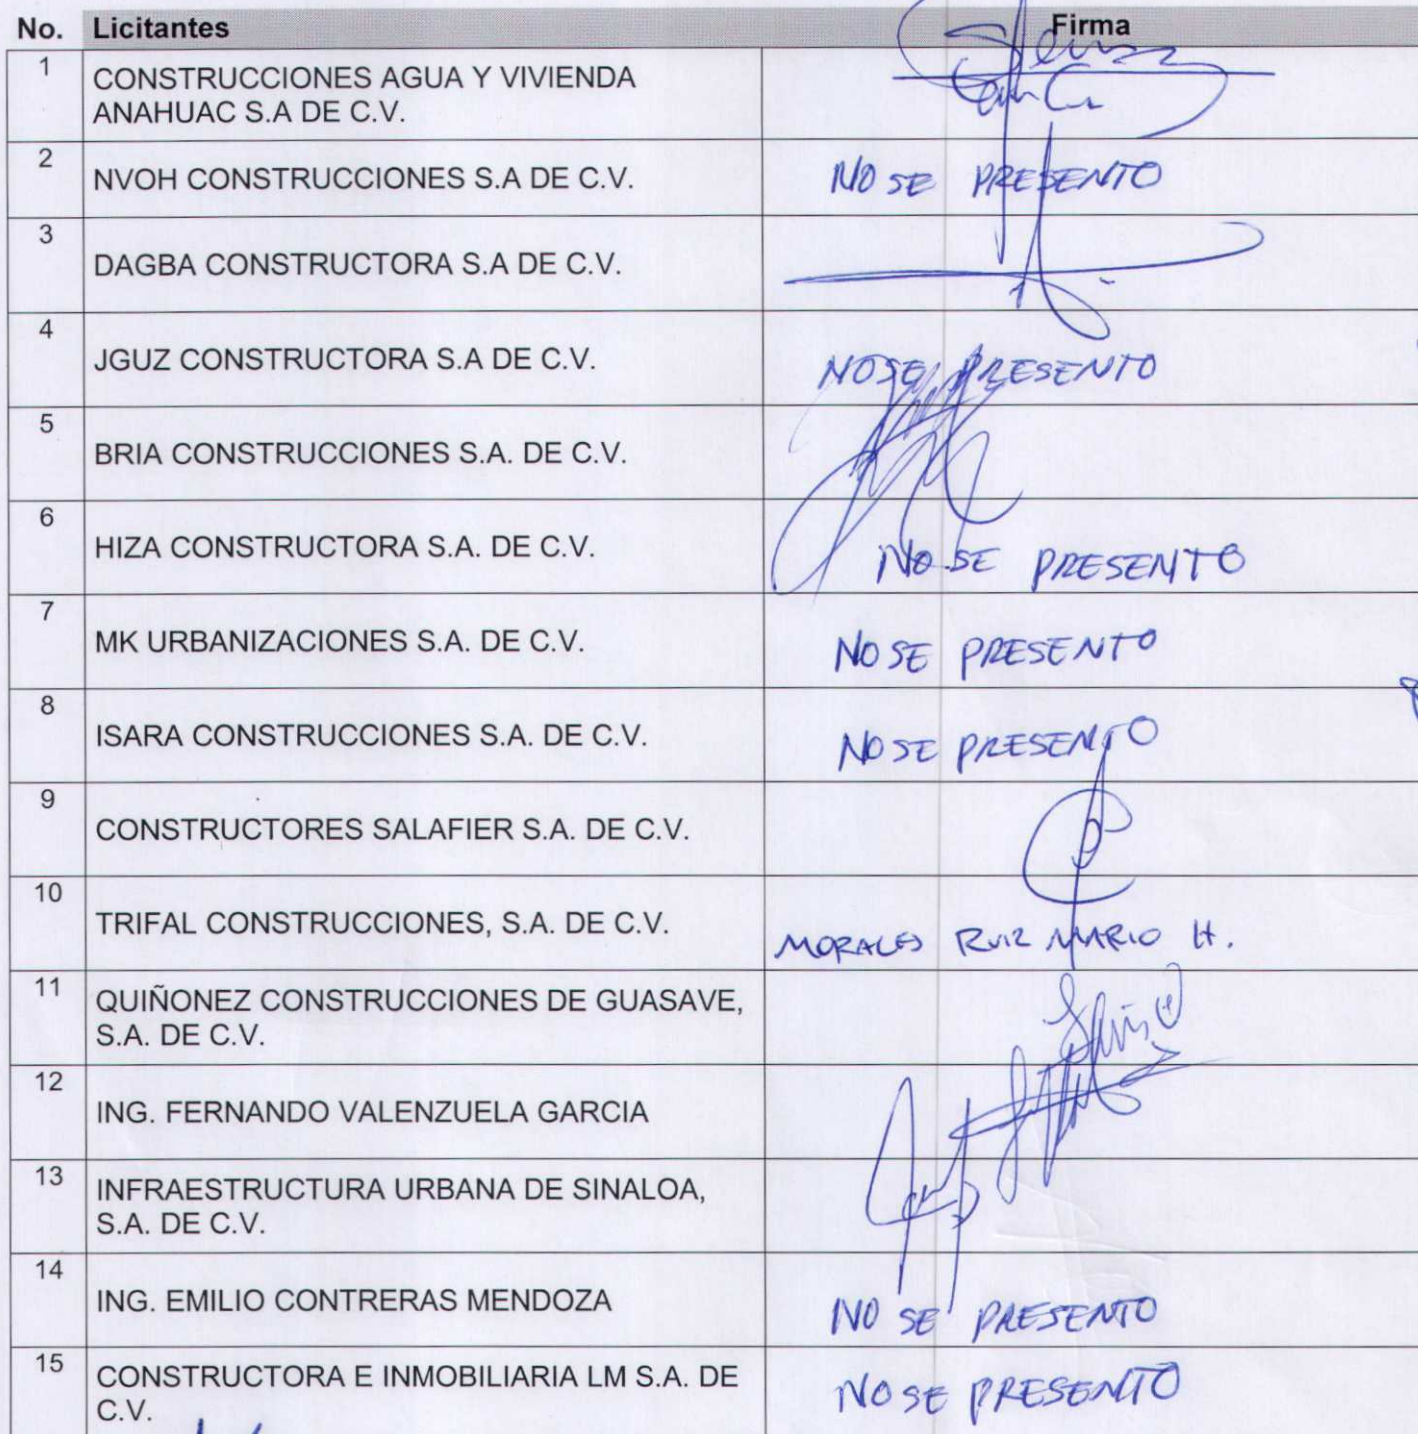 No. Licitantes Firma
1 CONSTRUCCIONES AGUA Y VIVIENDA
ANAHUAC S.A DE C.V.
2 NVOH CONSTRUCCIONES S.A DE C.V. NO SE PRESENTO
3 DAGBA CONSTRUCTORA S.A DE C.V.
4 JGUZ CONSTRUCTORA S.A DE C.V. NO SE PRESENTO
5 BRIA CONSTRUCCIONES S.A. DE C.V.
6 HIZA CONSTRUCTORA S.A. DE C.V. NO SE PRESENTO
7 MK URBANIZACIONES S.A. DE C.V. NO SE PRESENTO
8 ISARA CONSTRUCCIONES S.A. DE C.V. NO SE PRESENTO
9 CONSTRUCTORES SALAFIER S.A. DE C.V.
10 TRIFAL CONSTRUCCIONES, S.A. DE C.V. MORALES RUIZ MARIO H.
11 QUIÑONEZ CONSTRUCCIONES DE GUASAVE,
S.A. DE C.V.
12 ING. FERNANDO VALENZUELA GARCIA
13 INFRAESTRUCTURA URBANA DE SINALOA,
S.A. DE C.V.
14 ING. EMILIO CONTRERAS MENDOZA NO SE PRESENTO
15 CONSTRUCTORA E INMOBILIARIA LM S.A. DE
C.V. NO SE PRESENTO